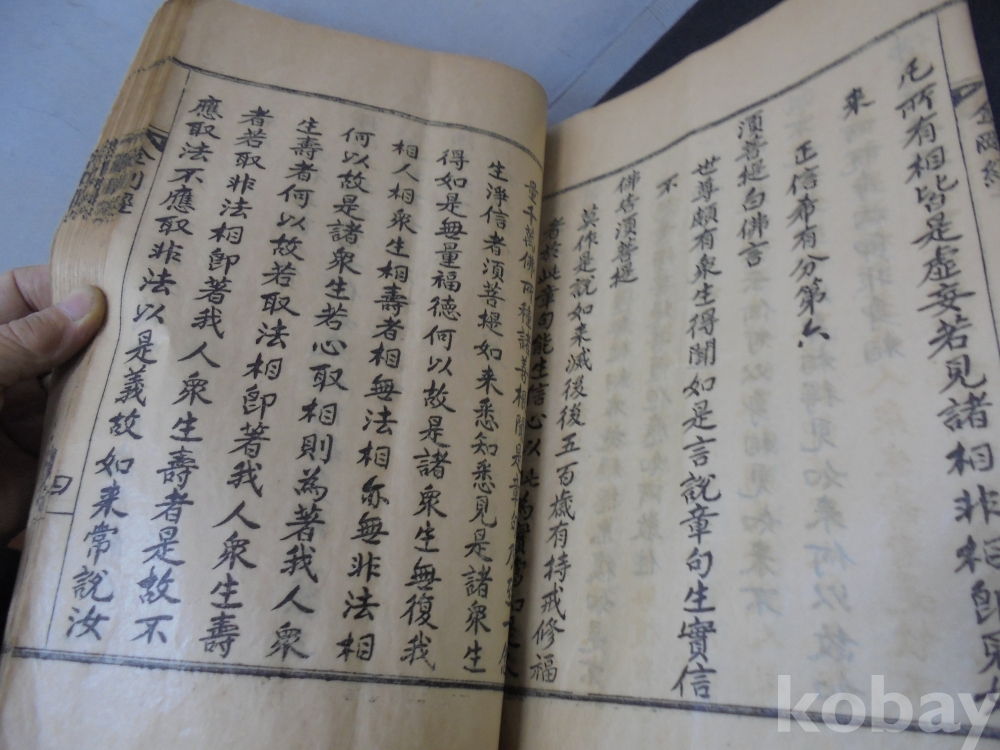 凡所有相皆是虛妄若見諸相非相即見如
來
正信希有分第六
須菩提白佛言
世尊頗有衆生得聞如是言說章句生實信
不
佛告須菩提
莫作是說如来滅後後五百歲有持戒修福
者於此章句能生信心以此為實當知是人
量千萬佛所種諸善根聞是章句
生淨信者須菩提如来悉知悉見是諸衆生
得如是無量福德何以故是諸衆生無復我
相人相衆生相壽者相無法相亦無非法相
何以故是諸衆生若心取相則為著我人衆
生壽者何以故若取法相卽著我人衆生壽
者若取非法相卽著我人衆生壽者是故不
應取法不應取非法以是義故如来常說汝
金剛經
kobay